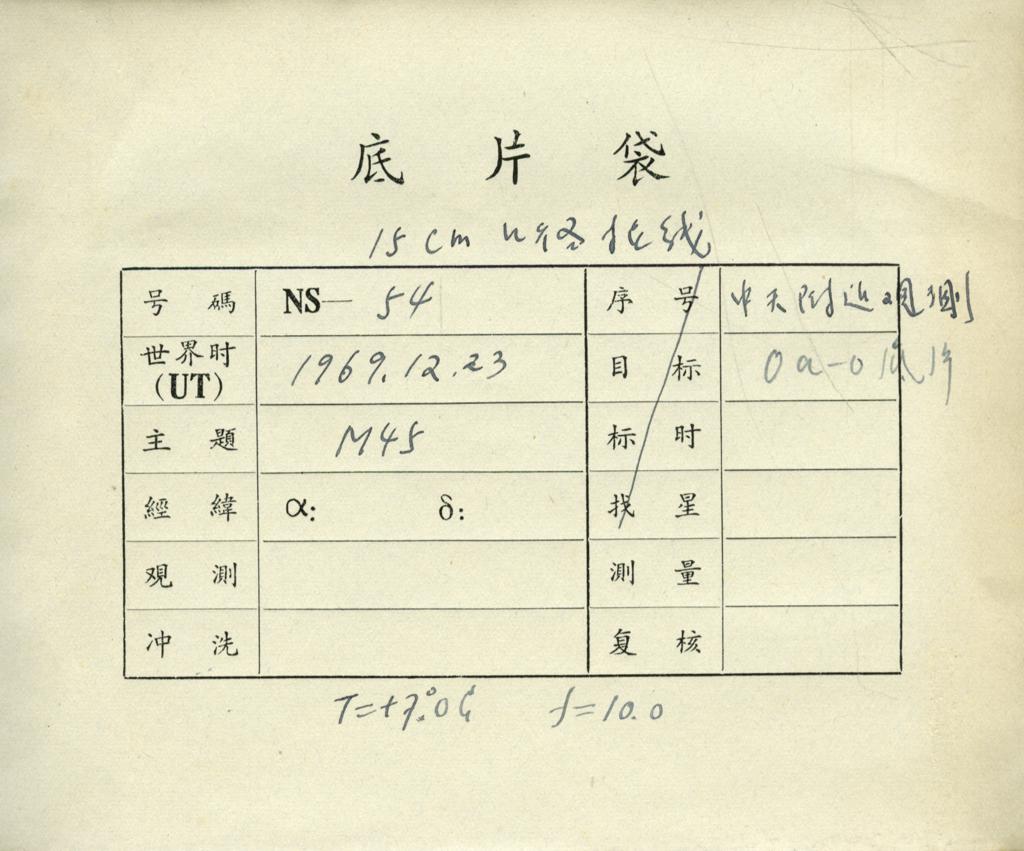 底片袋
15 cm
号碼 NS— 54 序号 中天附近
世界时(UT) 1969.12.23 目标 Oa-O 底片
主題 M45 标时
經緯 α: δ: 找星
观測 測量
冲洗 复核
T=+7.°0C f=10.0